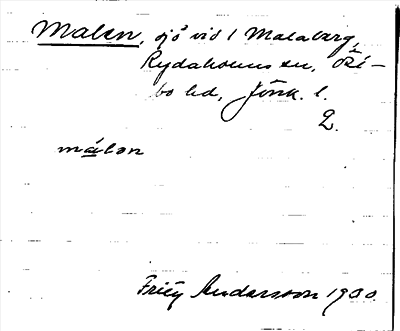 Malen, sjö vid 1 Malaberg,
Rydaholms sn, Öst-
bo hd, Jönk. l.
2.
målen
Fritz Andersson 1930.